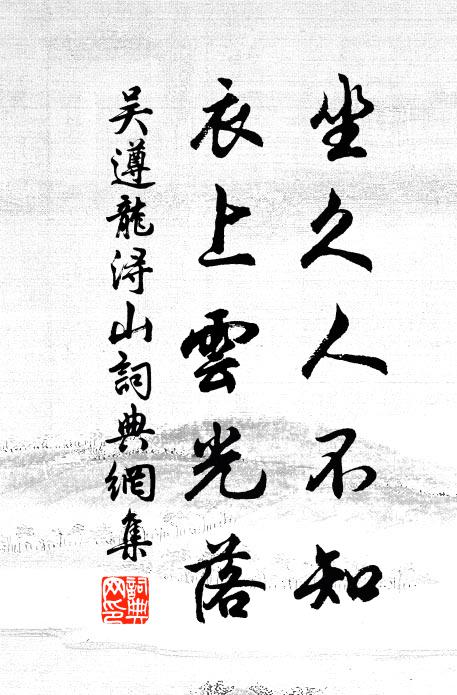 坐久人不知
衣上雲光落
吴遵龍潯山詞典網集
詞典網印